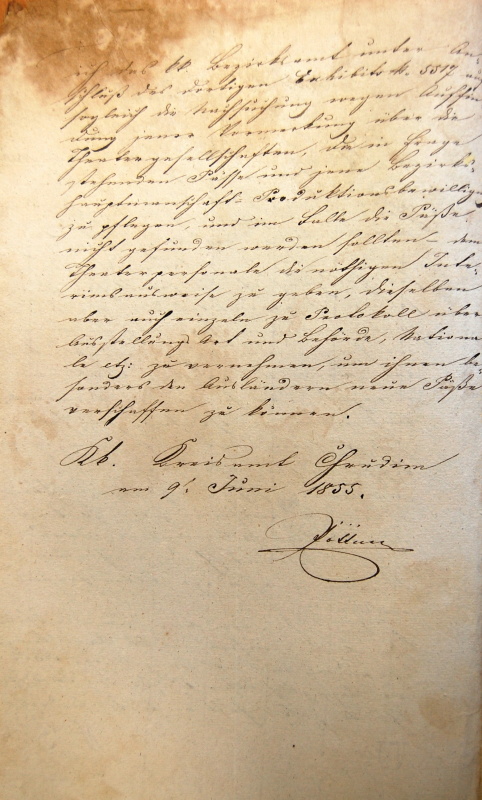 ich das kk. Bezirksamt unter An-
schluß des dortigen Exhibits N. 5517 auf
sogleich die Nachsuchung wegen Auffin
dung jener Vormerkung über die
Theatergesellschaften, die in Frage
stehenden Pässe und jene Bezirks-
hauptmannschaft Produktionsbewillig
zu pflegen, und im Falle die Päße
nicht gefunden werden sollten – dem
Theaterpersonale die nöthigen Inte-
rimsausweise zu geben, dieselben
aber auch einzeln zu Protokoll über
Ausstellungs Art und Behörde, Nationa
le etz: zu vernehmen, um ihnen be-
sonders den Ausländern neue Päße
verschaffen zu können.
Kk. Kreisamt Chrudim
am 9t. Juni 1855.